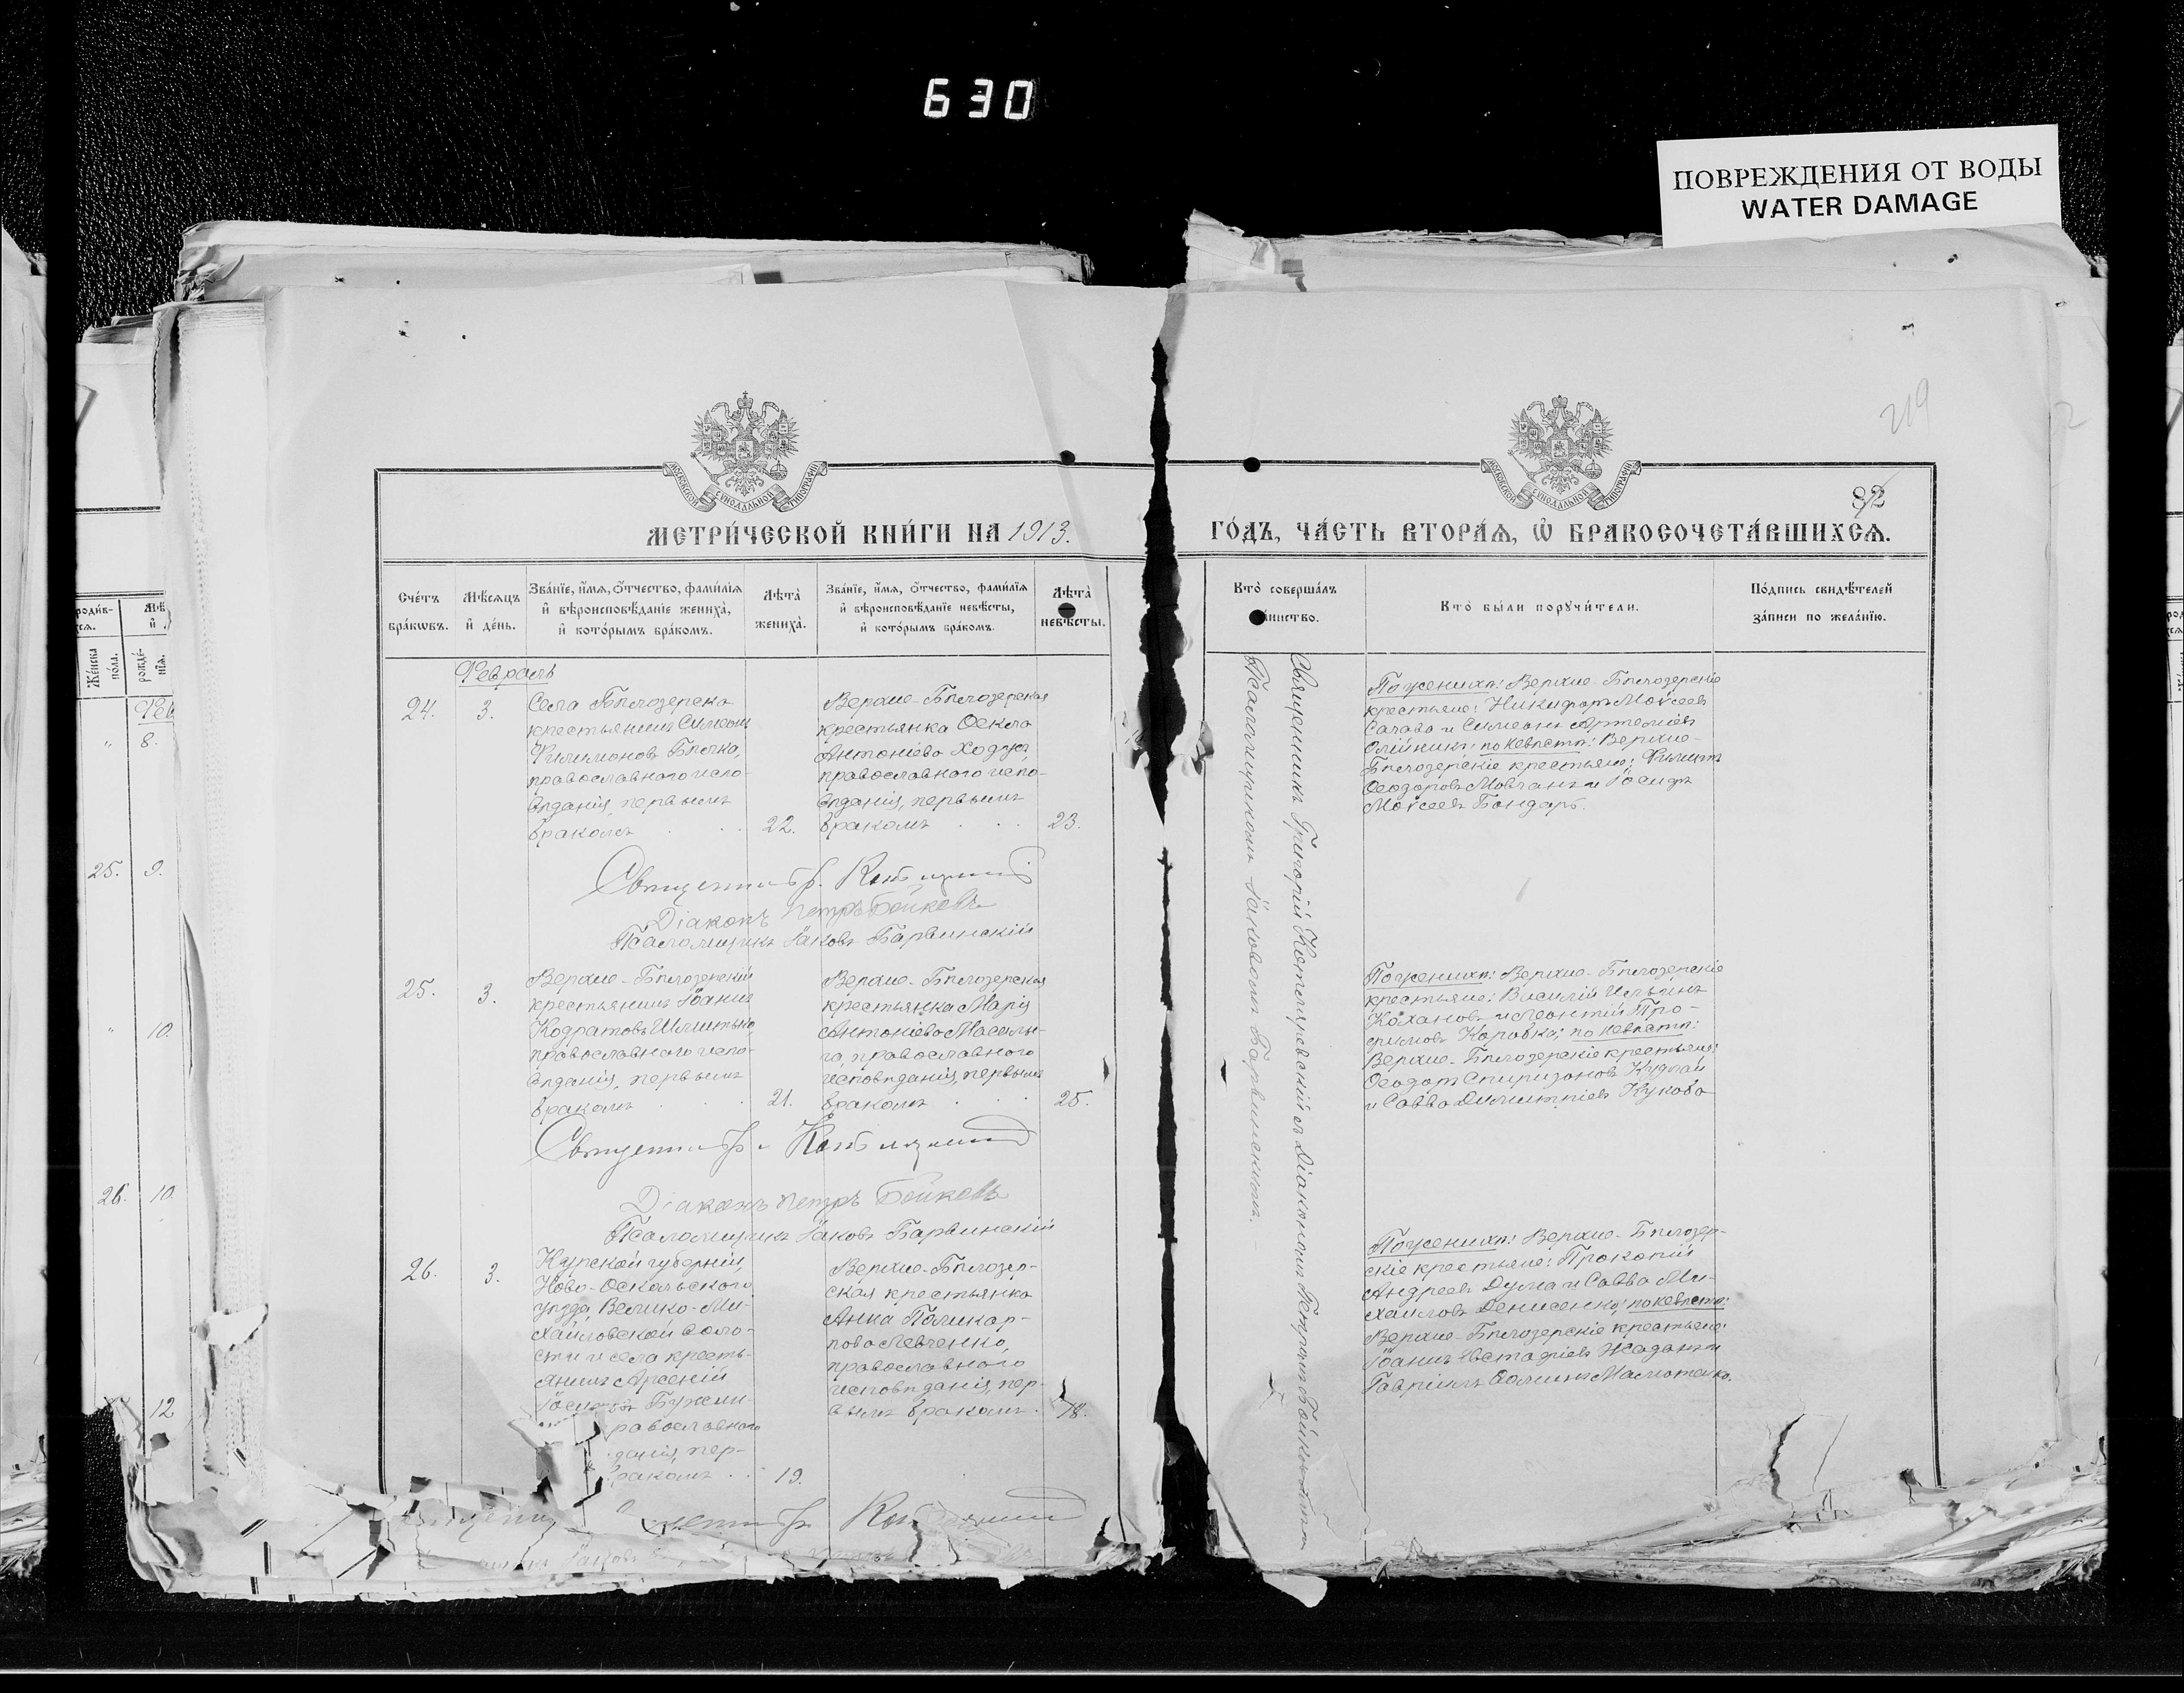 630
ПОВРЕЖДЕНИЯ ОТ ВОДЫ
WATER DAMAGE
219
82
МОСКОВСКОЙ СѴНОДАЛЬНОЙ ТИПОГРАФІИ
МОСКОВСКОЙ СѴНОДАЛЬНОЙ ТИПОГРАФІИ
МЕТРИ́ЧЕСКОЙ КНИ́ГИ НА 1913.
ГО́ДЪ, ЧА́СТЬ ВТОРА́Ѧ, Ѡ҆ БРАКОСОЧЕТА́ВШИХСѦ.
Сче́тъ бра́кѡвъ.
Мѣ́сѧцъ и҆ де́нь.
Зва́нїе, и҆́мѧ, ѻ҆́тчество, фами́лїѧ
и҆ вѣроисповѣ́данїе жениха̀,
и҆ кото́рымъ бра́комъ.
Лѣта̀ жениха̀.
Зва́нїе, и҆́мѧ, ѻ҆́тчество, фами́лїѧ
и҆ вѣроисповѣ́данїе невѣ́сты,
и҆ кото́рымъ бра́комъ.
Лѣта̀ невѣ́сты.
Кто̀ соверша́лъ
та́инство.
Кто̀ бы́ли порꙋчи́тели.
По́дпись свидѣ́телей
за́писи по жела́нїю.
Февраль
24.
3.
Села Бѣлозерка
крестьянинъ Симеонъ
Филимоновъ Бѣлка,
православнаго испо-
вѣданія, первымъ
бракомъ
22.
Верхне-Бѣлозерская
крестьянка Ѳекла
Антоніева Ходусъ
православнаго испо-
вѣданія, первымъ
бракомъ
23.
Священникъ Григорій Котляревскій съ Діакономъ Петромъ Бойковымъ и
Псаломщикомъ Іаковомъ Барвинскимъ.
По женихѣ: Верхне-Бѣлозерскіе
крестьяне: Никифоръ Моѵсеевъ
Сачава и Симеонъ Артеміевъ
Олійникъ; по невѣстѣ: Верхне-
Бѣлозерскіе крестьяне: Филиппъ
Ѳеодоровъ Мовчанъ и Іосифъ
Моѵсеевъ Бондарь.
Священникъ Гр. Котляревскій
Діаконъ Петръ Бойковъ
Псаломщикъ Іаковъ Барвинскій
25.
3.
Верхне-Бѣлозерскій
крестьянинъ Іоаннъ
Кодратовъ Шлитько,
православнаго испо-
вѣданія, первымъ
бракомъ
21.
Верхне-Бѣлозерская
крестьянка Марія
Антоніева Масалы-
га православнаго
исповѣданія, первымъ
бракомъ
25.
По женихѣ: Верхне-Бѣлозерскіе
крестьяне: Василій Ильинъ
Кохановъ и Леонтій Тро-
фимовъ Коровка; по невѣстѣ:
Верхне-Бѣлозерскіе крестьяне:
Ѳеодоръ Спиридоновъ Кудлай
и Савва Димитріевъ Жукова
Священникъ Гр. Котляревскій
Діаконъ Петръ Бойковъ
Псаломщикъ Іаковъ Барвинскій
26.
3.
Курской губерніи,
Ново-Оскольскаго
уѣзда, Велико-Ми-
хайловской воло-
сти и села кресть-
янинъ Арсеній
Іосифовъ Бужин-
равославнаго
даніѧ, пер-
бракомъ
19.
Верхне-Бѣлозер-
ская крестьянка
Анна Поликар-
пова Левченко,
православнаго
исповѣданія, пер-
вымъ бракомъ.
18.
По женихѣ: Верхне-Бѣлозер-
скіе крестьяне: Прокопій
Андреевъ Дума и Савва Ми-
хаиловъ Денисенко; по невѣстѣ:
Верхне-Бѣлозерскіе крестьяне:
Іоаннъ Евстафіевъ Жаданъ и
Гавріилъ Ѳоминъ Малютенко.
Фев
8.
25.
9.
10.
26.
10.
12